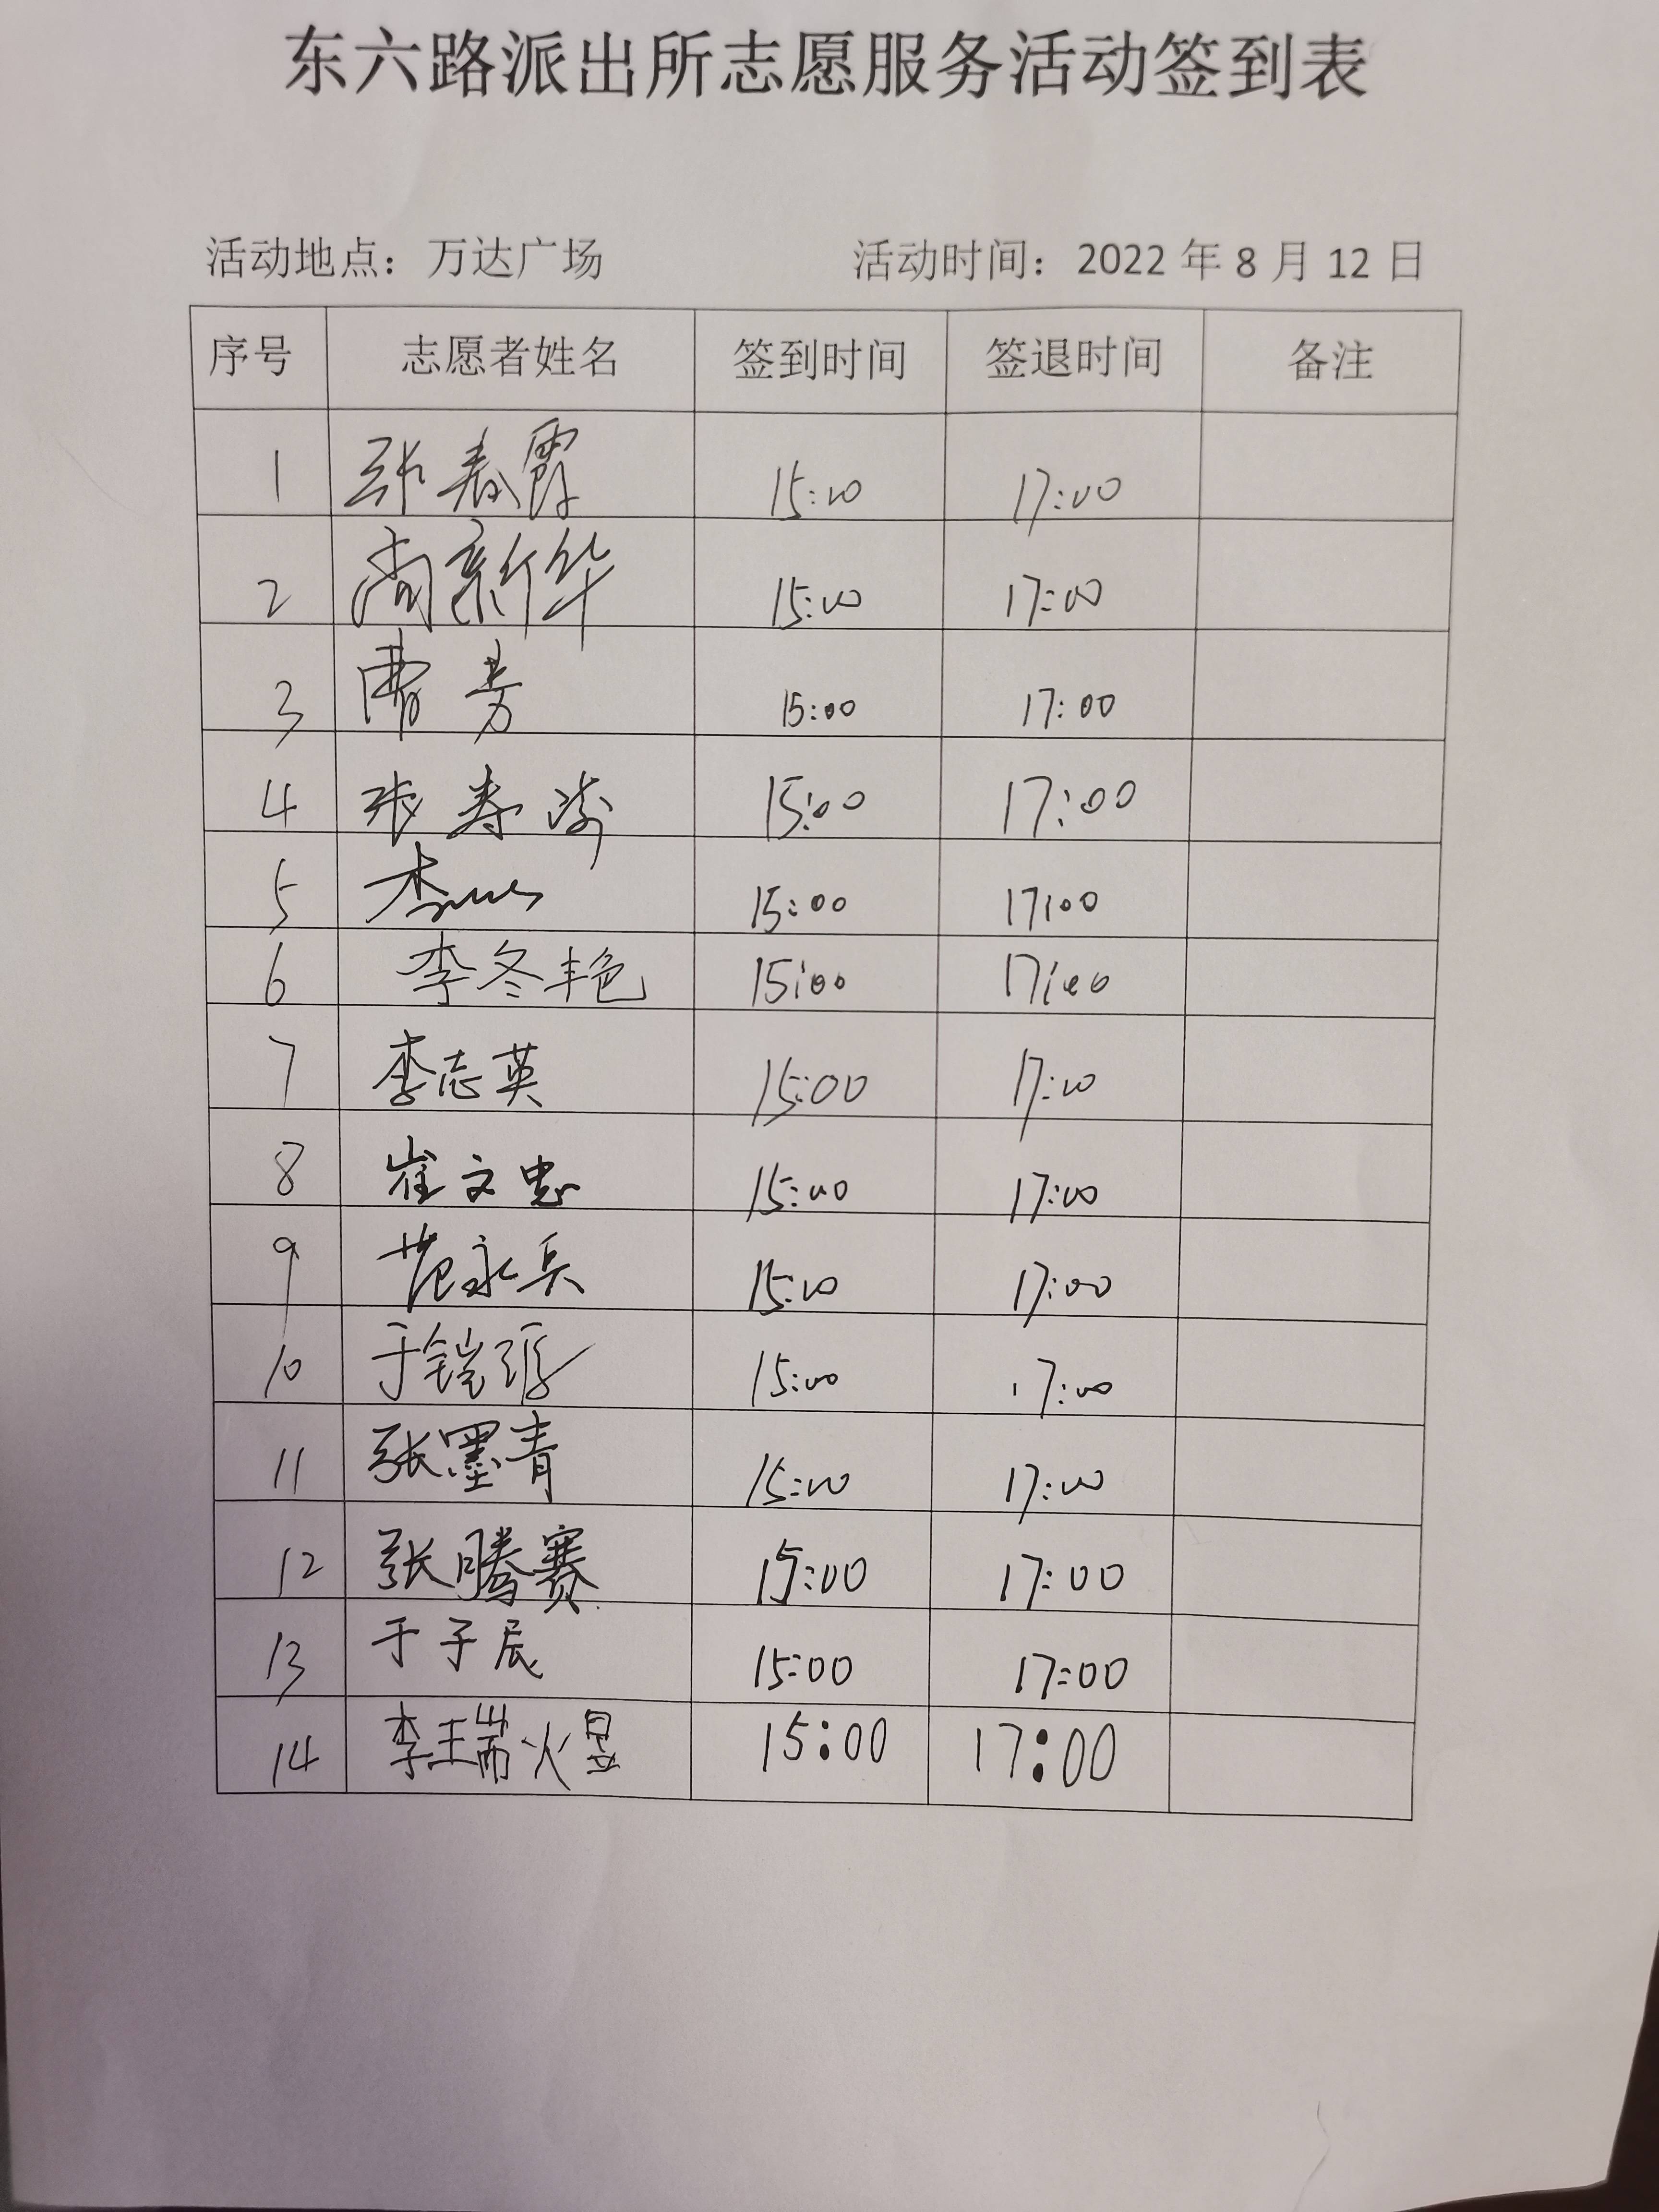 东六路派出所志愿服务活动签到表
活动地点：万达广场 活动时间：2022 年 8 月 12 日
序号 志愿者姓名 签到时间 签退时间 备注
1 张春霞 15:00 17:00
2 尚新华 15:00 17:00
3 曹芳 15:00 17:00
4 张春 15:00 17:00
5 李 15:00 17:00
6 李冬艳 15:00 17:00
7 李志英 15:00 17:00
8 崔文忠 15:00 17:00
9 范永兵 15:00 17:00
10 于铠 15:00 17:00
11 张墨青 15:00 17:00
12 张腾赛 15:00 17:00
13 于子辰 15:00 17:00
14 李瑞焜 15:00 17:00